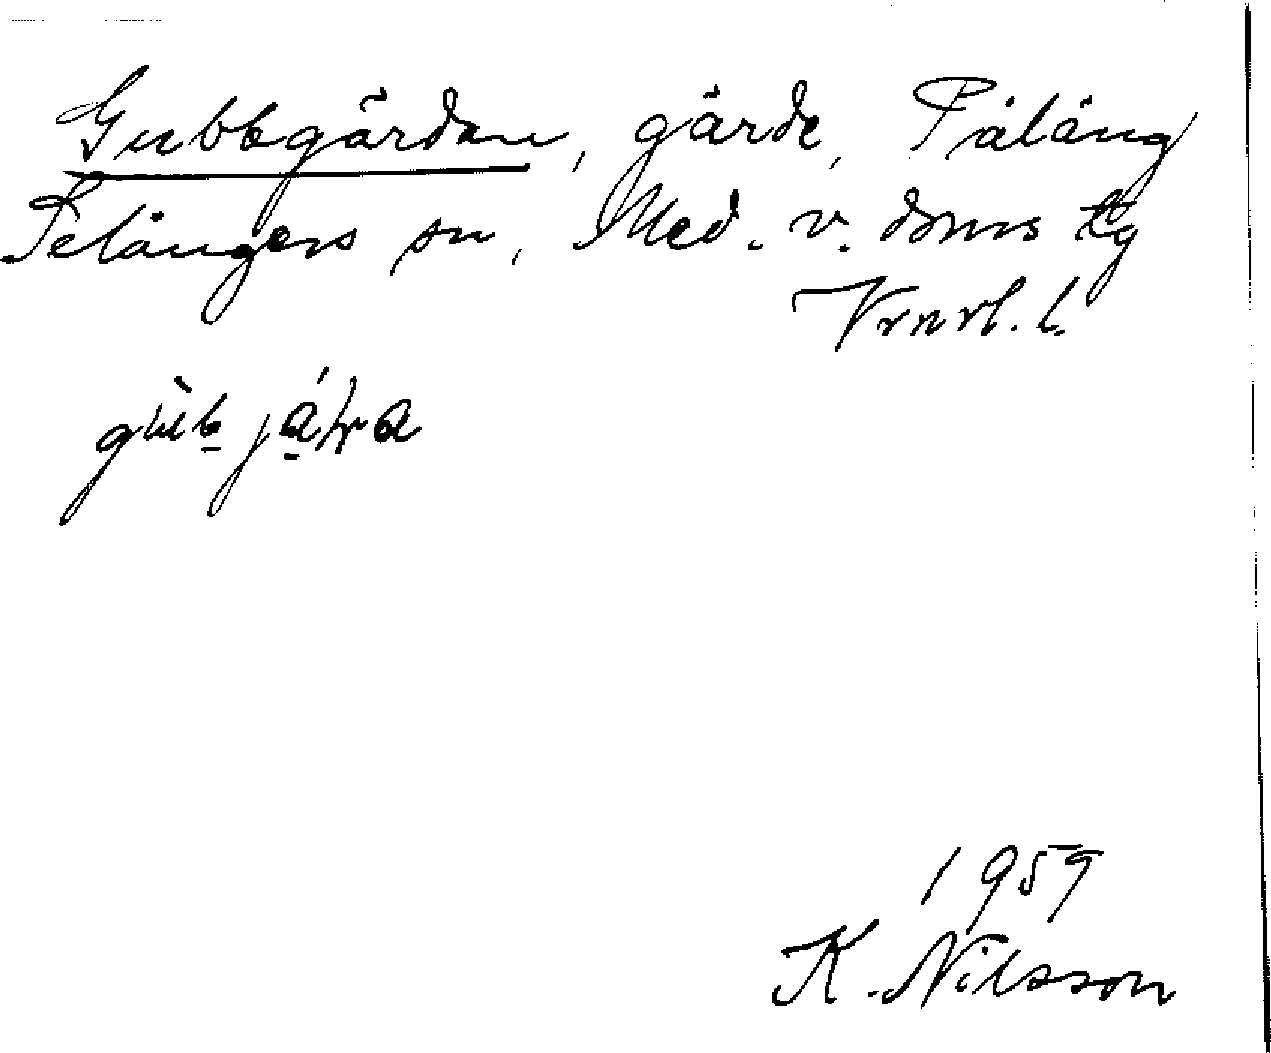 Gubbgärdan, gärde, Påläng
Selångers sn, Med. v. doms tg
Vrnrl. l.
gùb jáṛa
1959
K. Nilsson